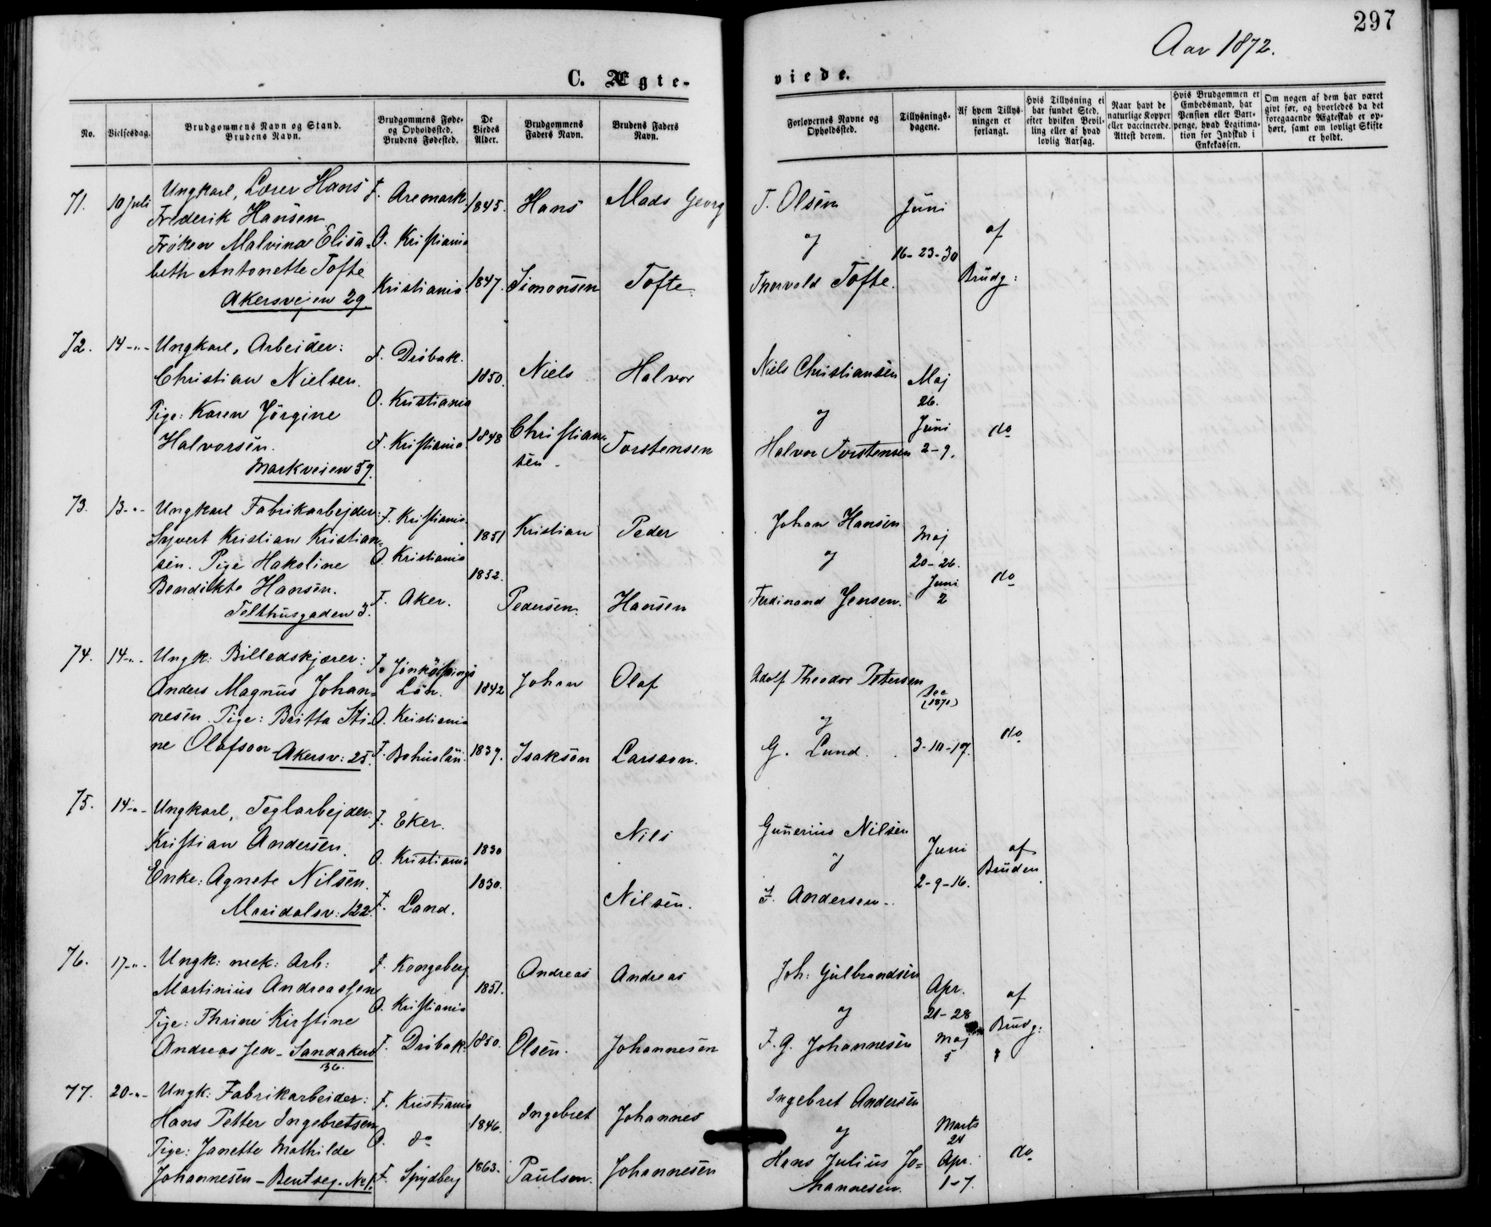 297
Aar 1872.
C. Ægte-
viede.
No.
Vielsesdag.
Brudgommens Navn og Stand.
Brudens Navn.
Brudgommens Føde-
og Opholdssted.
Brudens Fødested.
De
Viedes
Alder.
Brudgommens
Faders Navn.
Brudens Faders
Navn.
Forlovernes Navne og
Opholdssted.
Tillysnings-
dagene.
Af hvem Tillys-
ningen er
forlangt.
Hvis Tillysning ei
har fundet Sted,
efter hvilken Bevil-
ling eller af hvad
lovlig Aarsag.
Naar havt de
naturlige Kopper
eller vaccinerede.
Attest derom.
Hvis Brudgommen er
Embedsmand, har
Pension eller Vart-
penge, hvad Legitima-
tion for Indskud i
Enkekassen.
Om nogen af dem har været
gift før, og hvorledes da det
foregaaende Ægteskab er op-
hørt, samt om lovligt Skifte
er holdt.
71.
10 Juli
Ungkarl, Lærer Hans
Frederik Hansen
Frøken Malvina Elisa-
beth Antonette Tofte
Akersveien 29
F. Aremark
O. Kristiania
Kristiania
1845.
1847.
Hans
Simonsen
Mads Georg
Tofte
T. Olsen
og
Thorvald Tofte.
Juni
16-23-30
af
Brudg:
72.
14-"-
Ungkarl, Arbeider:
Christian Nielsen.
Pige: Karen Jørgine
Halvorsen.
Markveien 59.
F. Drøbak.
O. Kristiania
F. Kristiania.
1850.
1848
Niels
Christian-
sen.
Halvor
Torstensen
Niels Christiansen
og
Halvor Torstensen
Maj
26.
Juni
2-9.
do
73.
13-"-
Ungkarl Fabrikarbejder:
Syvert Kristian Kristian-
sen. Pige Hakoline
Bendikte Hansen.
Telthusgaden 3.
F. Kristiania.
O. Kristiania
F. Aker.
1851
1852.
Kristian
Pedersen.
Peder
Hansen
Johan Hansen
og
Ferdinand Jensen.
Maj
20-26.
Juni
2
do
74.
14-"-
Ungk: Billedskjærer:
Anders Magnus Johan-
nesen. Pige: Britta Sti-
ne Olafson
Akersv: 25.
F. Jönköpings
Län.
O. Kristiania
F. Bohuslän.
1842
1839.
Johan
Isaksön
Olaf
Larsson.
Adolf Theodor Petersen
og
G. Lund.
(1871)
3-10-17.
do
75.
14-"-
Ungkarl, Teglarbejder
Kristian Andersen.
Enke: Agnete Nilsen.
Maridalsv: 122.
F. Eker.
O. Kristiania
F. Land.
1830
1830.
Nils
Nilsen.
Gunerius Nilsen
og
F. Andersen.
Juni
2-9-16.
af
Bruden
76.
17-"-
Ungk: mek: Arb:
Martinius Andreassen
Pige: Thrine Kirstine
Andreassen - Sandakerv
36.
F. Kongsberg
O. Kristiania
F. Drøbak.
1851.
1850.
Andreas
Olsen.
Andreas
Johannesen
Joh: Gulbrandsen
og
F. G. Johannesen
Apr.
21-28
Maj
5
af
Brudg:
77.
20-"-
Ungk: Fabrikarbeider:
Hans Petter Ingebretsen
Pige: Janette Mathilde
Johannesen - Bentseg. No 1.
F. Kristiania
O. do
F. Spydberg
1846.
1863.
Ingebret
Paulsen.
Johannes
Johannesen
Ingebret Andersen
og
Hans Julius Jo-
hannesen.
Marts
24
Apr.
1-7.
do